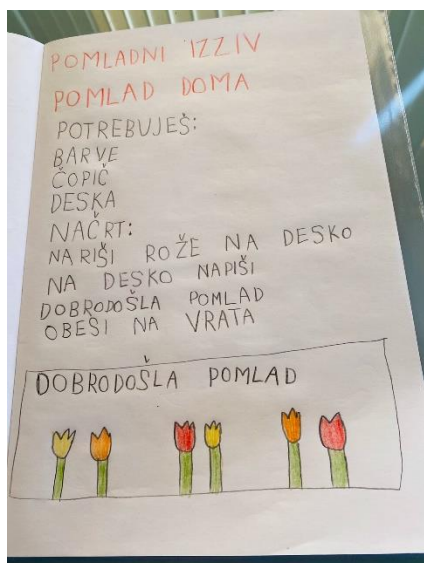 POMLADNI IZZIV
POMLAD DOMA
POTREBUJEŠ:
BARVE
ČOPIČ
DESKA
NAČRT:
NARIŠI ROŽE NA DESKO
NA DESKO NAPIŠI
DOBRODOŠLA POMLAD
OBESI NA VRATA
DOBRODOŠLA POMLAD